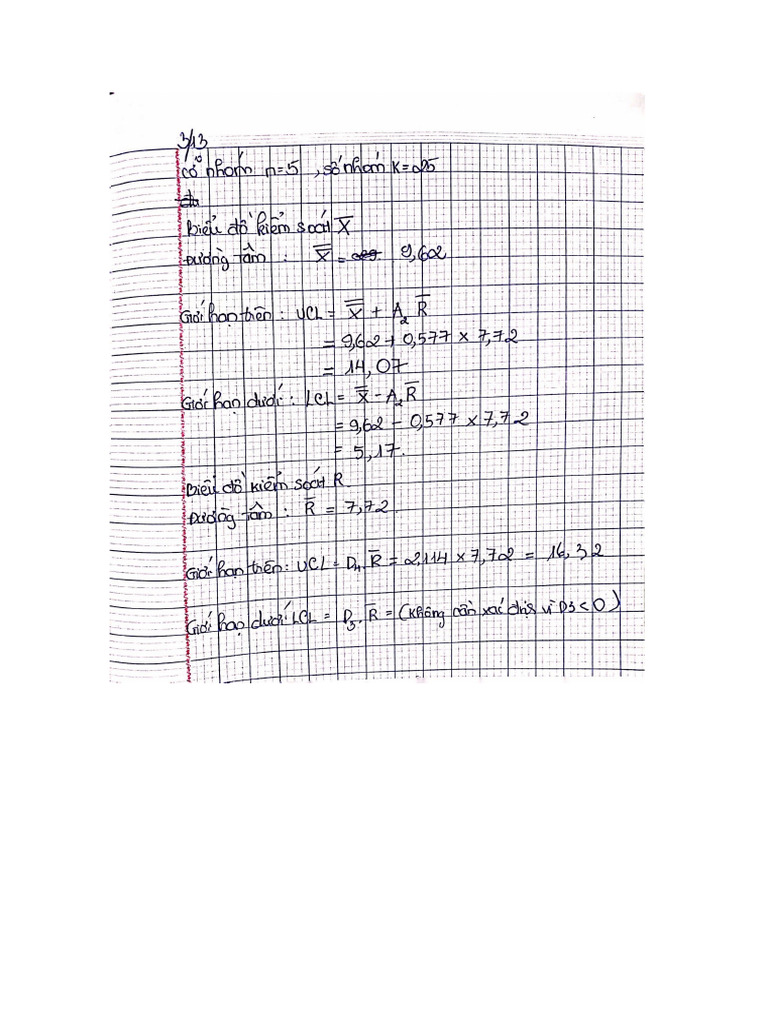 3/13
Cỡ nhóm n=5 , số nhóm K=25
Biểu đồ kiểm soát X̅
Đường tâm : X̿ = 9,62
Giới hạn trên : UCL = X̿ + A₂ R̅
= 9,62 + 0,577 × 7,72
= 14,07
Giới hạn dưới : LCL = X̿ - A₂ R̅
= 9,62 - 0,577 × 7,72
= 5,17.
Biểu đồ kiểm soát R
Đường tâm : R̅ = 7,72
Giới hạn trên : UCL = D₄ R̅ = 2,114 × 7,72 = 16,32
Giới hạn dưới LCL = D₃. R̅ = (Không cần xác định vì D3 < 0)